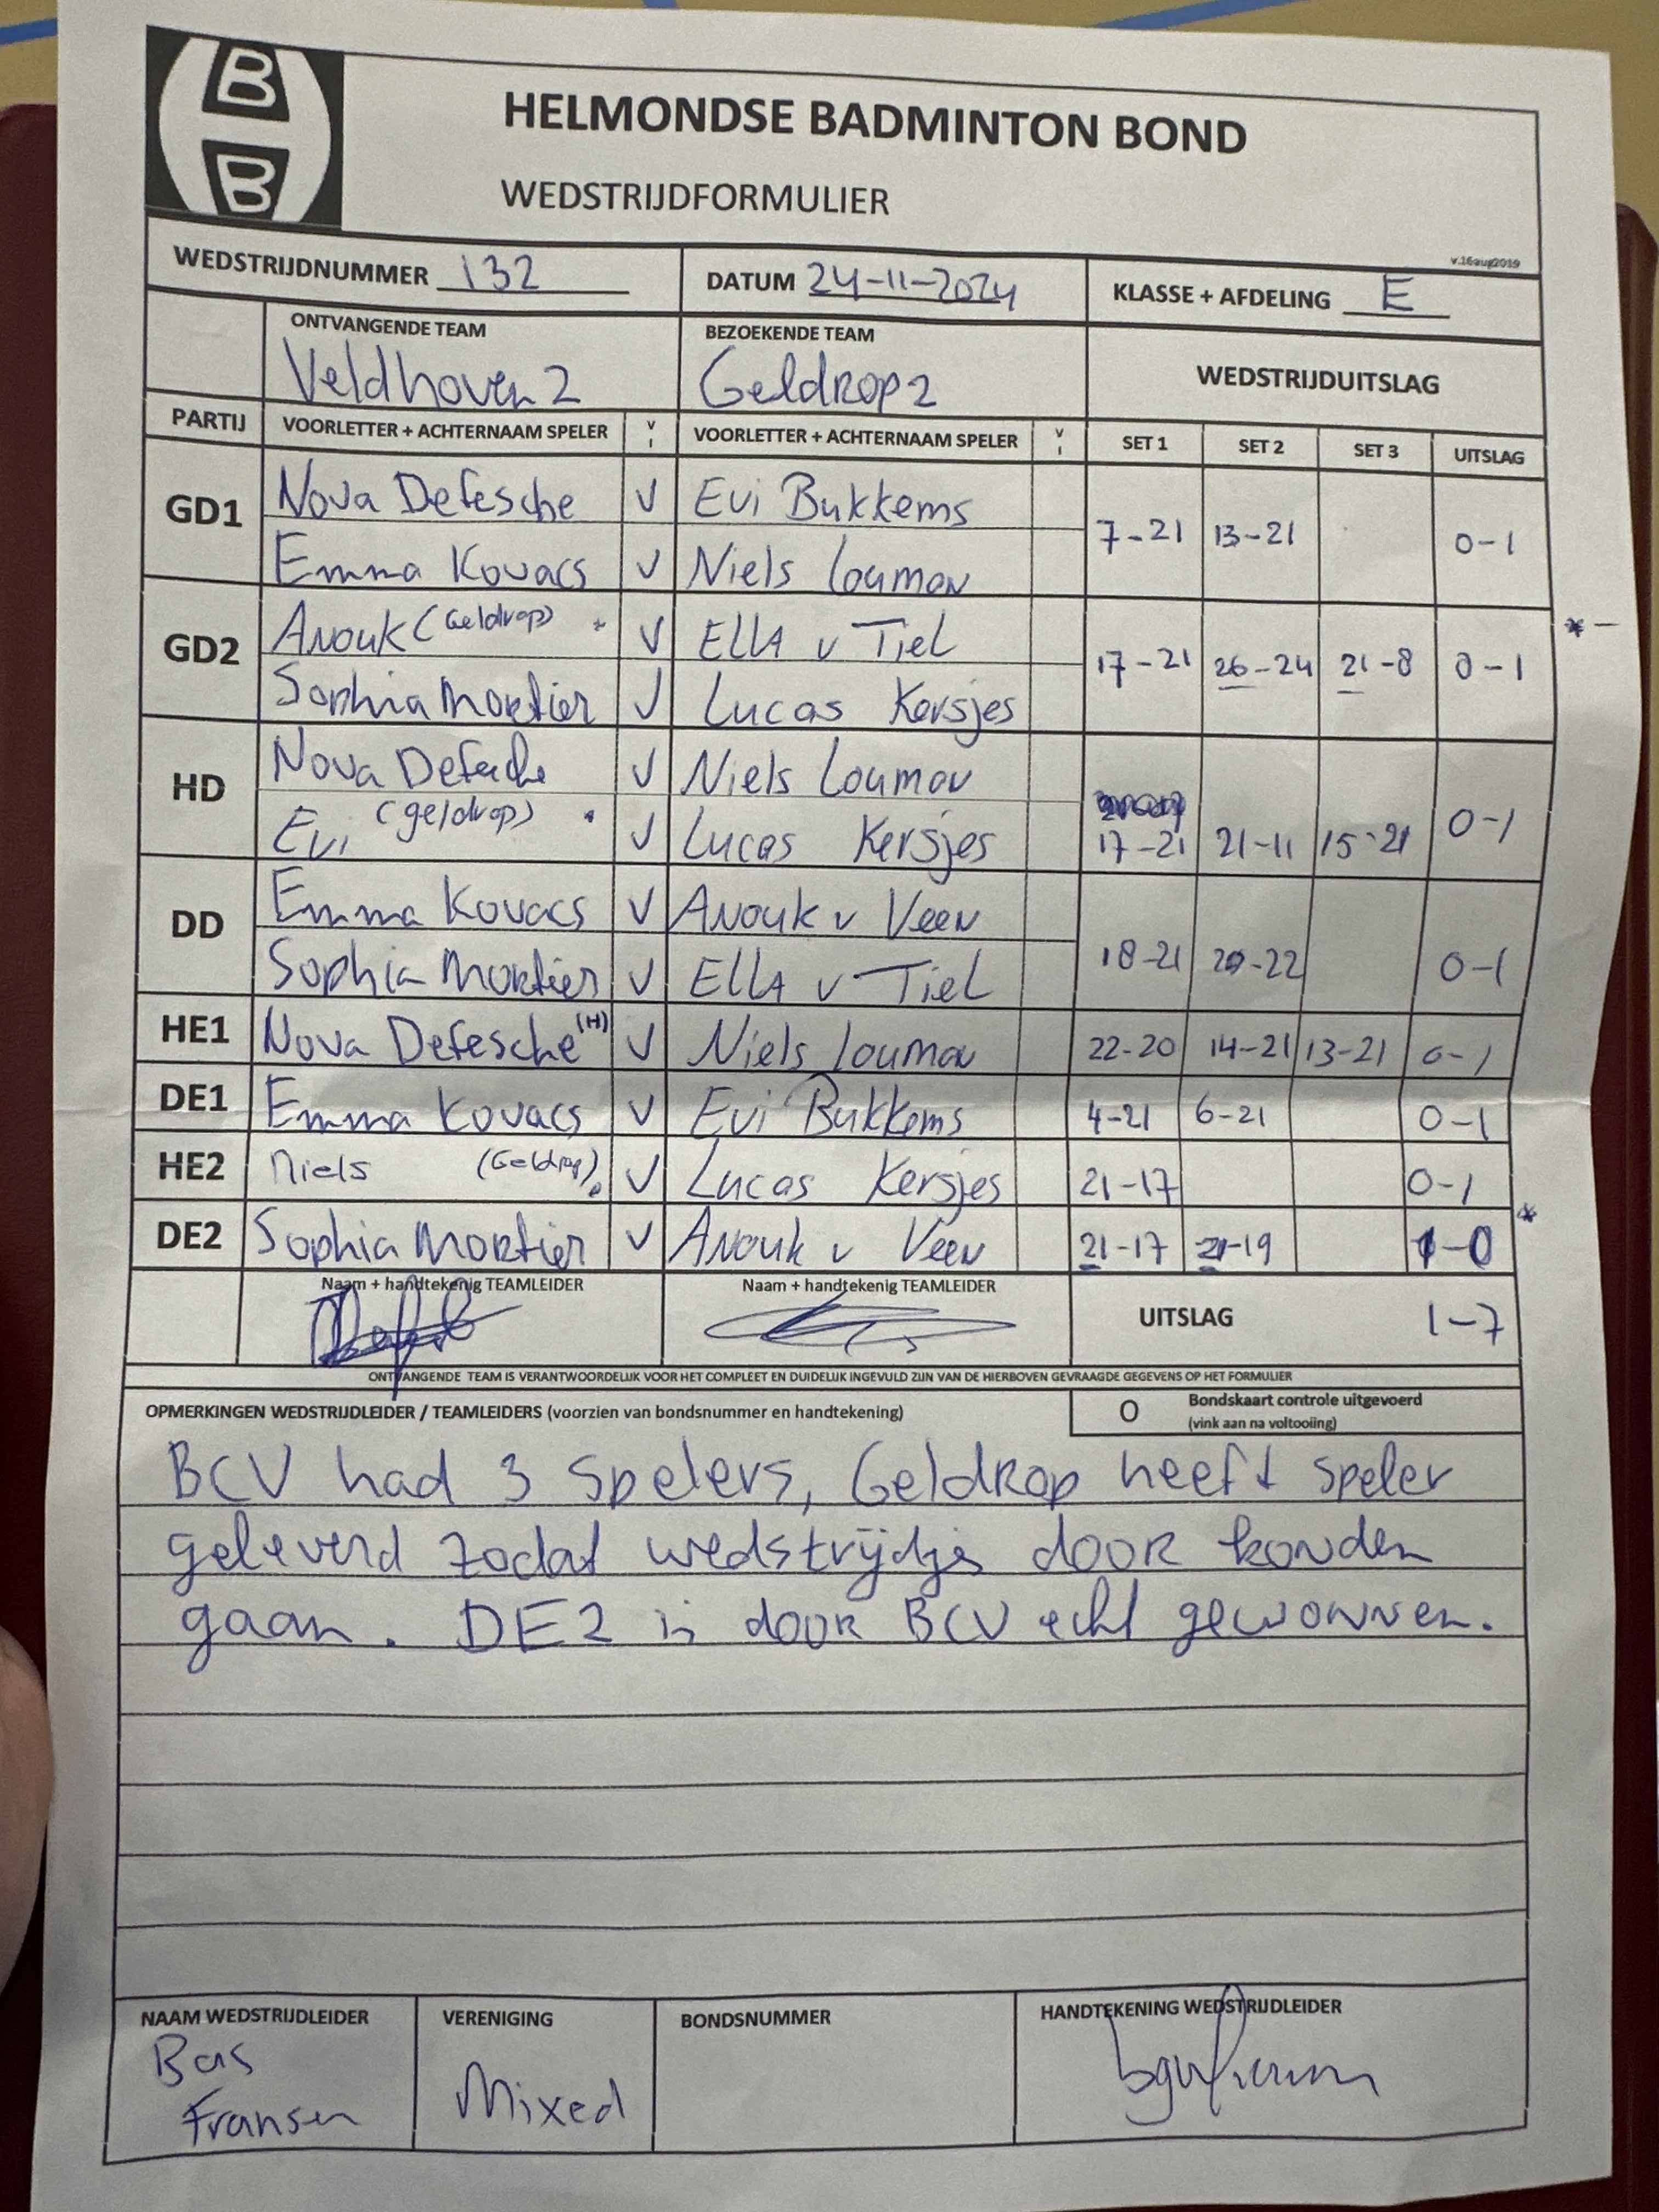 B
B
HELMONDSE BADMINTON BOND
WEDSTRIJDFORMULIER
v.16aug2019
WEDSTRIJDNUMMER 132 DATUM 24-11-2024 KLASSE + AFDELING E
ONTVANGENDE TEAM BEZOEKENDE TEAM
Veldhoven 2 Geldrop 2 WEDSTRIJDUITSLAG
PARTIJ VOORLETTER + ACHTERNAAM SPELER V VOORLETTER + ACHTERNAAM SPELER V SET 1 SET 2 SET 3 UITSLAG
GD1 Nova Defesche V Evi Bukkems 7-21 13-21 0-1
Emma Kovacs V Niels Loumou
GD2 Anouk (Geldrop) * V Ella v Tiel 17-21 26-24 21-8 0-1 * -
Sophia Mortier V Lucas Kersjes
HD Nova Defesche V Niels Loumou
Evi (geldrop) * V Lucas Kersjes 17-21 21-11 15-21 0-1
DD Emma Kovacs V Anouk v Veen 18-21 20-22 0-1
Sophia Mortier V Ella v Tiel
HE1 Nova Defesche (H) V Niels Loumou 22-20 14-21 13-21 0-1
DE1 Emma Kovacs V Evi Bukkems 4-21 6-21 0-1
HE2 Niels (Geldrop) V Lucas Kersjes 21-17 0-1
DE2 Sophia Mortier V Anouk v Veen 21-17 21-19 1-0 *
Naam + handtekenig TEAMLEIDER Naam + handtekenig TEAMLEIDER
UITSLAG 1-7
ONTVANGENDE TEAM IS VERANTWOORDELIJK VOOR HET COMPLEET EN DUIDELIJK INGEVULD ZIJN VAN DE HIERBOVEN GEVRAAGDE GEGEVENS OP HET FORMULIER
OPMERKINGEN WEDSTRIJDLEIDER / TEAMLEIDERS (voorzien van bondsnummer en handtekening) O Bondskaart controle uitgevoerd
(vink aan na voltooiing)
BCV had 3 spelers, Geldrop heeft speler
geleverd zodat wedstrijdjes door konden
gaan. DE2 is door BCV echt gewonnen.
NAAM WEDSTRIJDLEIDER VERENIGING BONDSNUMMER HANDTEKENING WEDSTRIJDLEIDER
Bas
Fransen Mixed